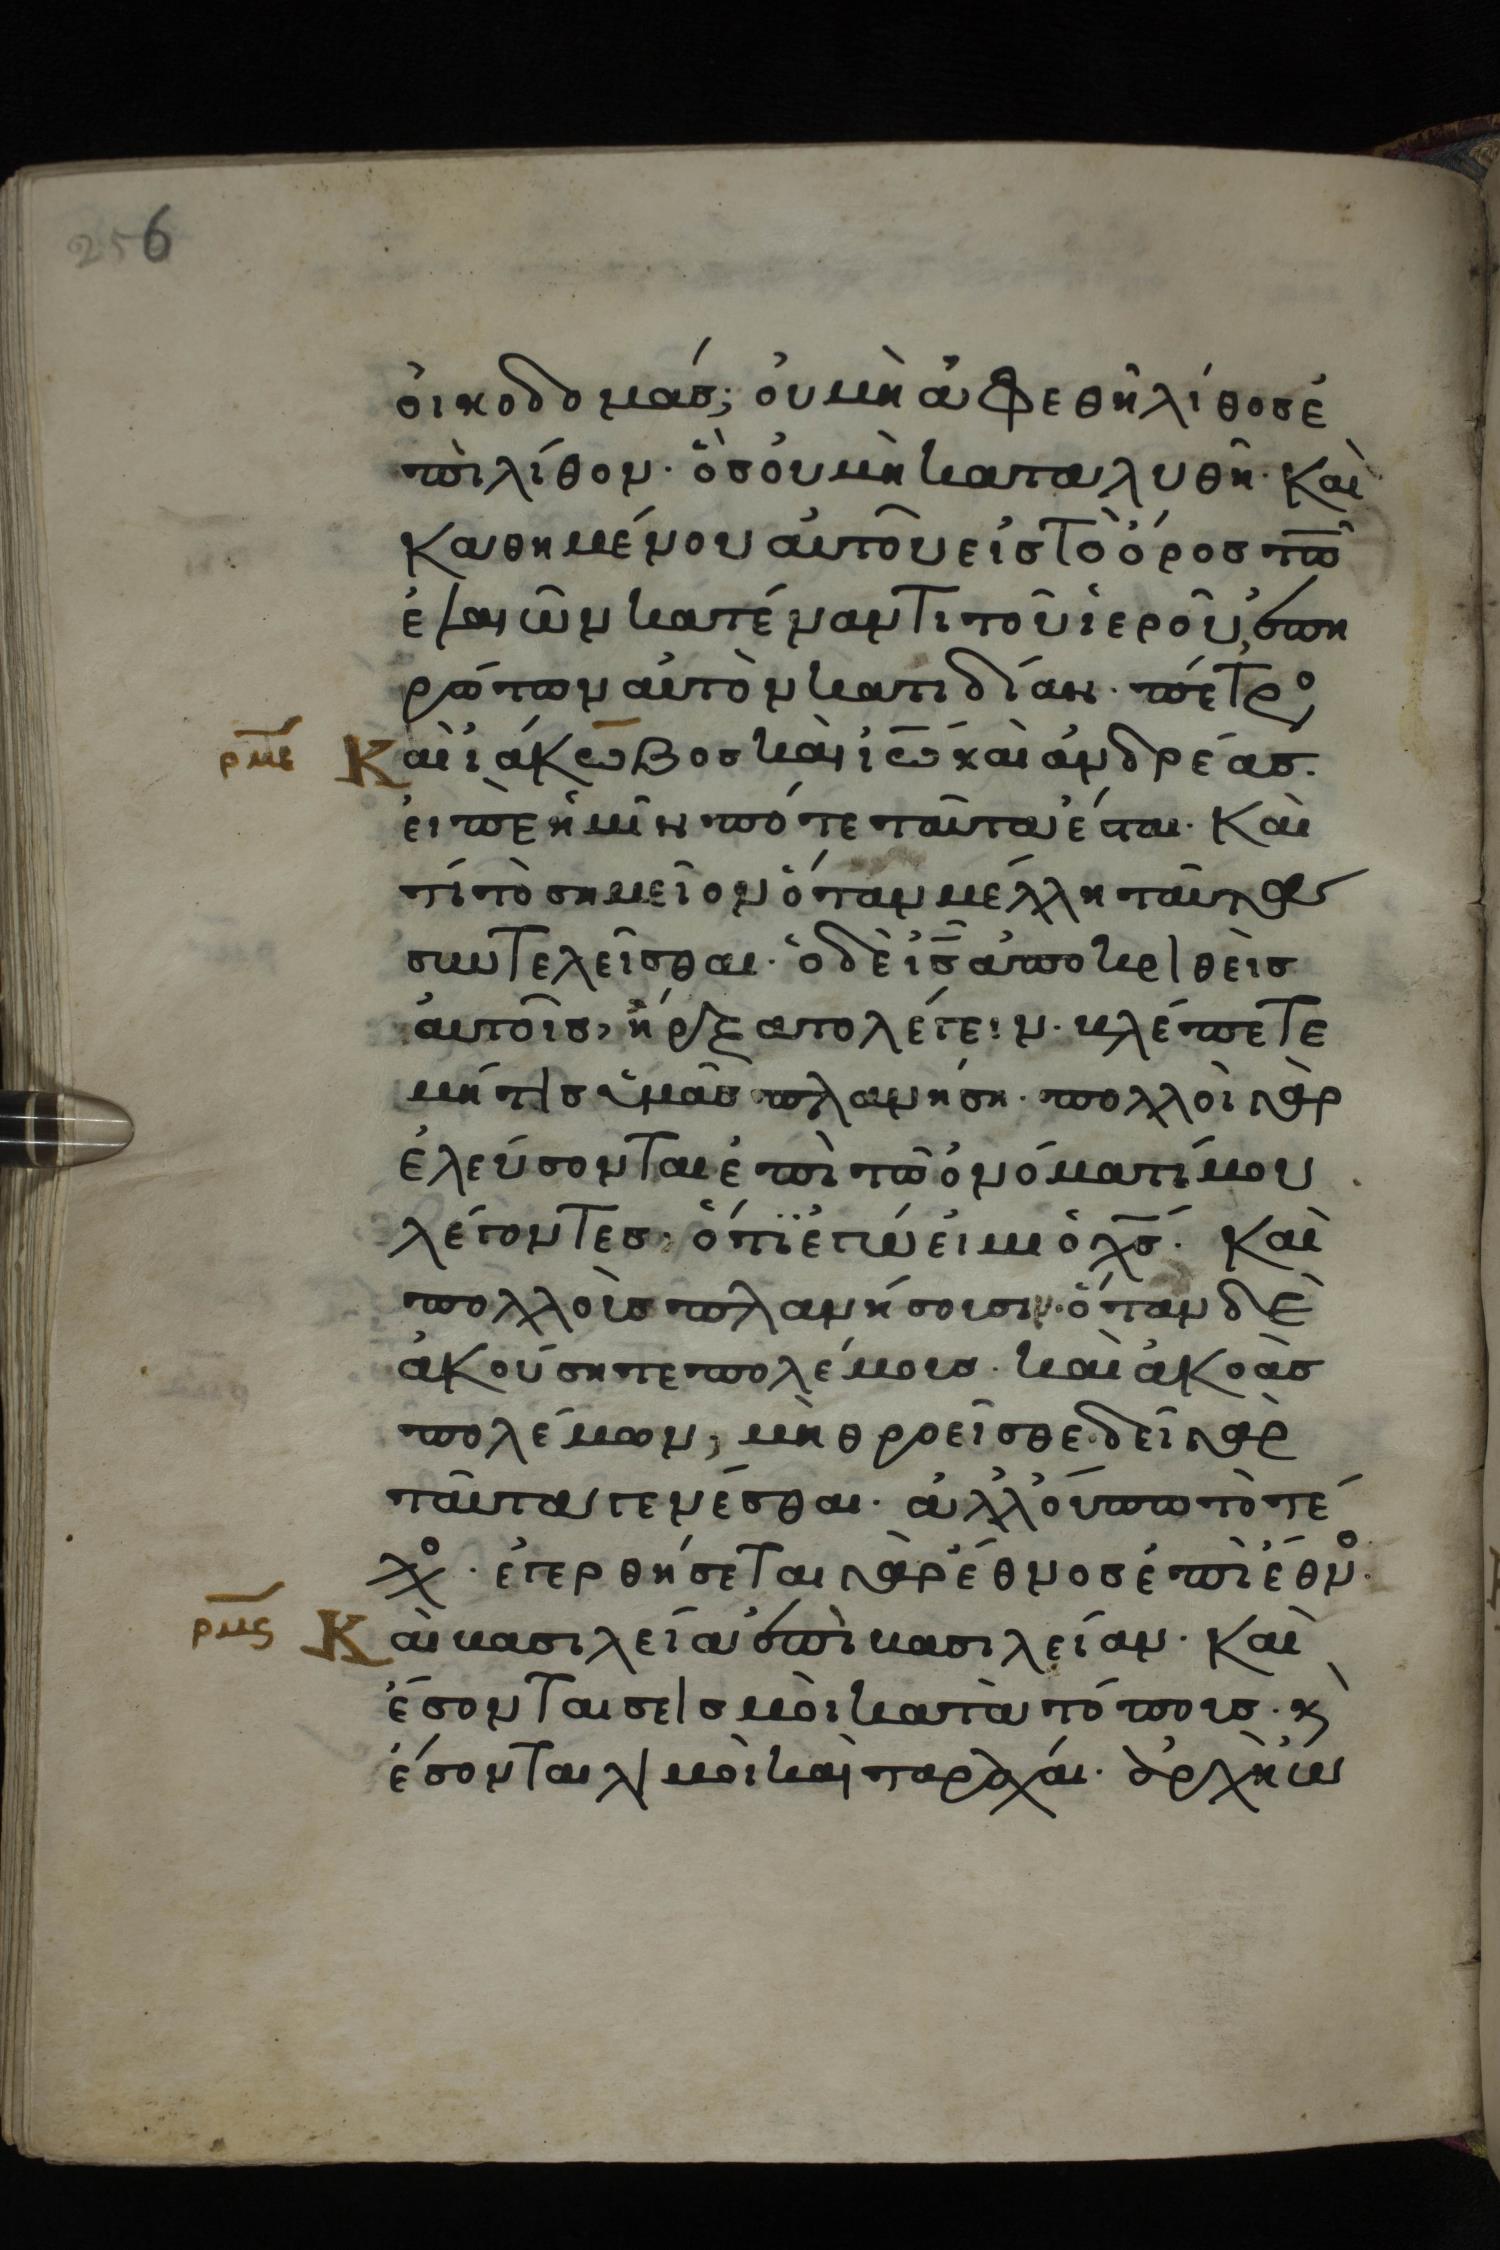 256
οἰκοδομάς; οὐ μὴ ἀφεθῆ λίθος ἐ
πὶ λίθον· ὃς οὐ μὴ καταλυθῆ· Καὶ
καθημένου αὐτοῦ εἰς τὸ ὄρος τῶ
ἐλαιῶν κατέναντι τοῦ ἱεροῦ, ἐπη
ρώτων αὐτὸν κατιδίαν· πέτρο
ρμε Καὶ ἰάκωβος καὶ ἰω καὶ ἀνδρέας.
εἰπὲ ἡμῖν πότε ταῦτα ἔσται· Καὶ
τί τὸ σημεῖον ὅταν μέλλη ταῦτα
συντελεῖσθαι· ὁ δὲ ις ἀποκριθεὶς
αὐτοῖς, ἤρξατο λέγειν· βλέπετε
μή τις ὑμᾶς πλανήση· πολλοὶ γὰρ
ἐλεύσονται ἐπὶ τῶ ὀνόματί μου
λέγοντες, ὅτι ἐγώ εἰμι ὁ χς· Καὶ
πολλοὺς πλανήσουσιν· ὅταν δὲ
ἀκούσητε πολέμους· καὶ ἀκοὰς
πολέμων, μὴ θροεῖσθε· δεῖ γὰρ
ταῦτα γενέσθαι· ἀλλ οὔπω τὸ τέ
λο· ἐγερθήσεται γὰρ ἔθνος ἐπὶ ἔθνο·
ρμς Καὶ βασιλεία ἐπὶ βασιλείαν· Καὶ
ἔσονται σεισμοὶ κατὰ τόπους· κ
ἔσονται λιμοὶ καὶ ταραχάι· ἀρχὴ ὠ